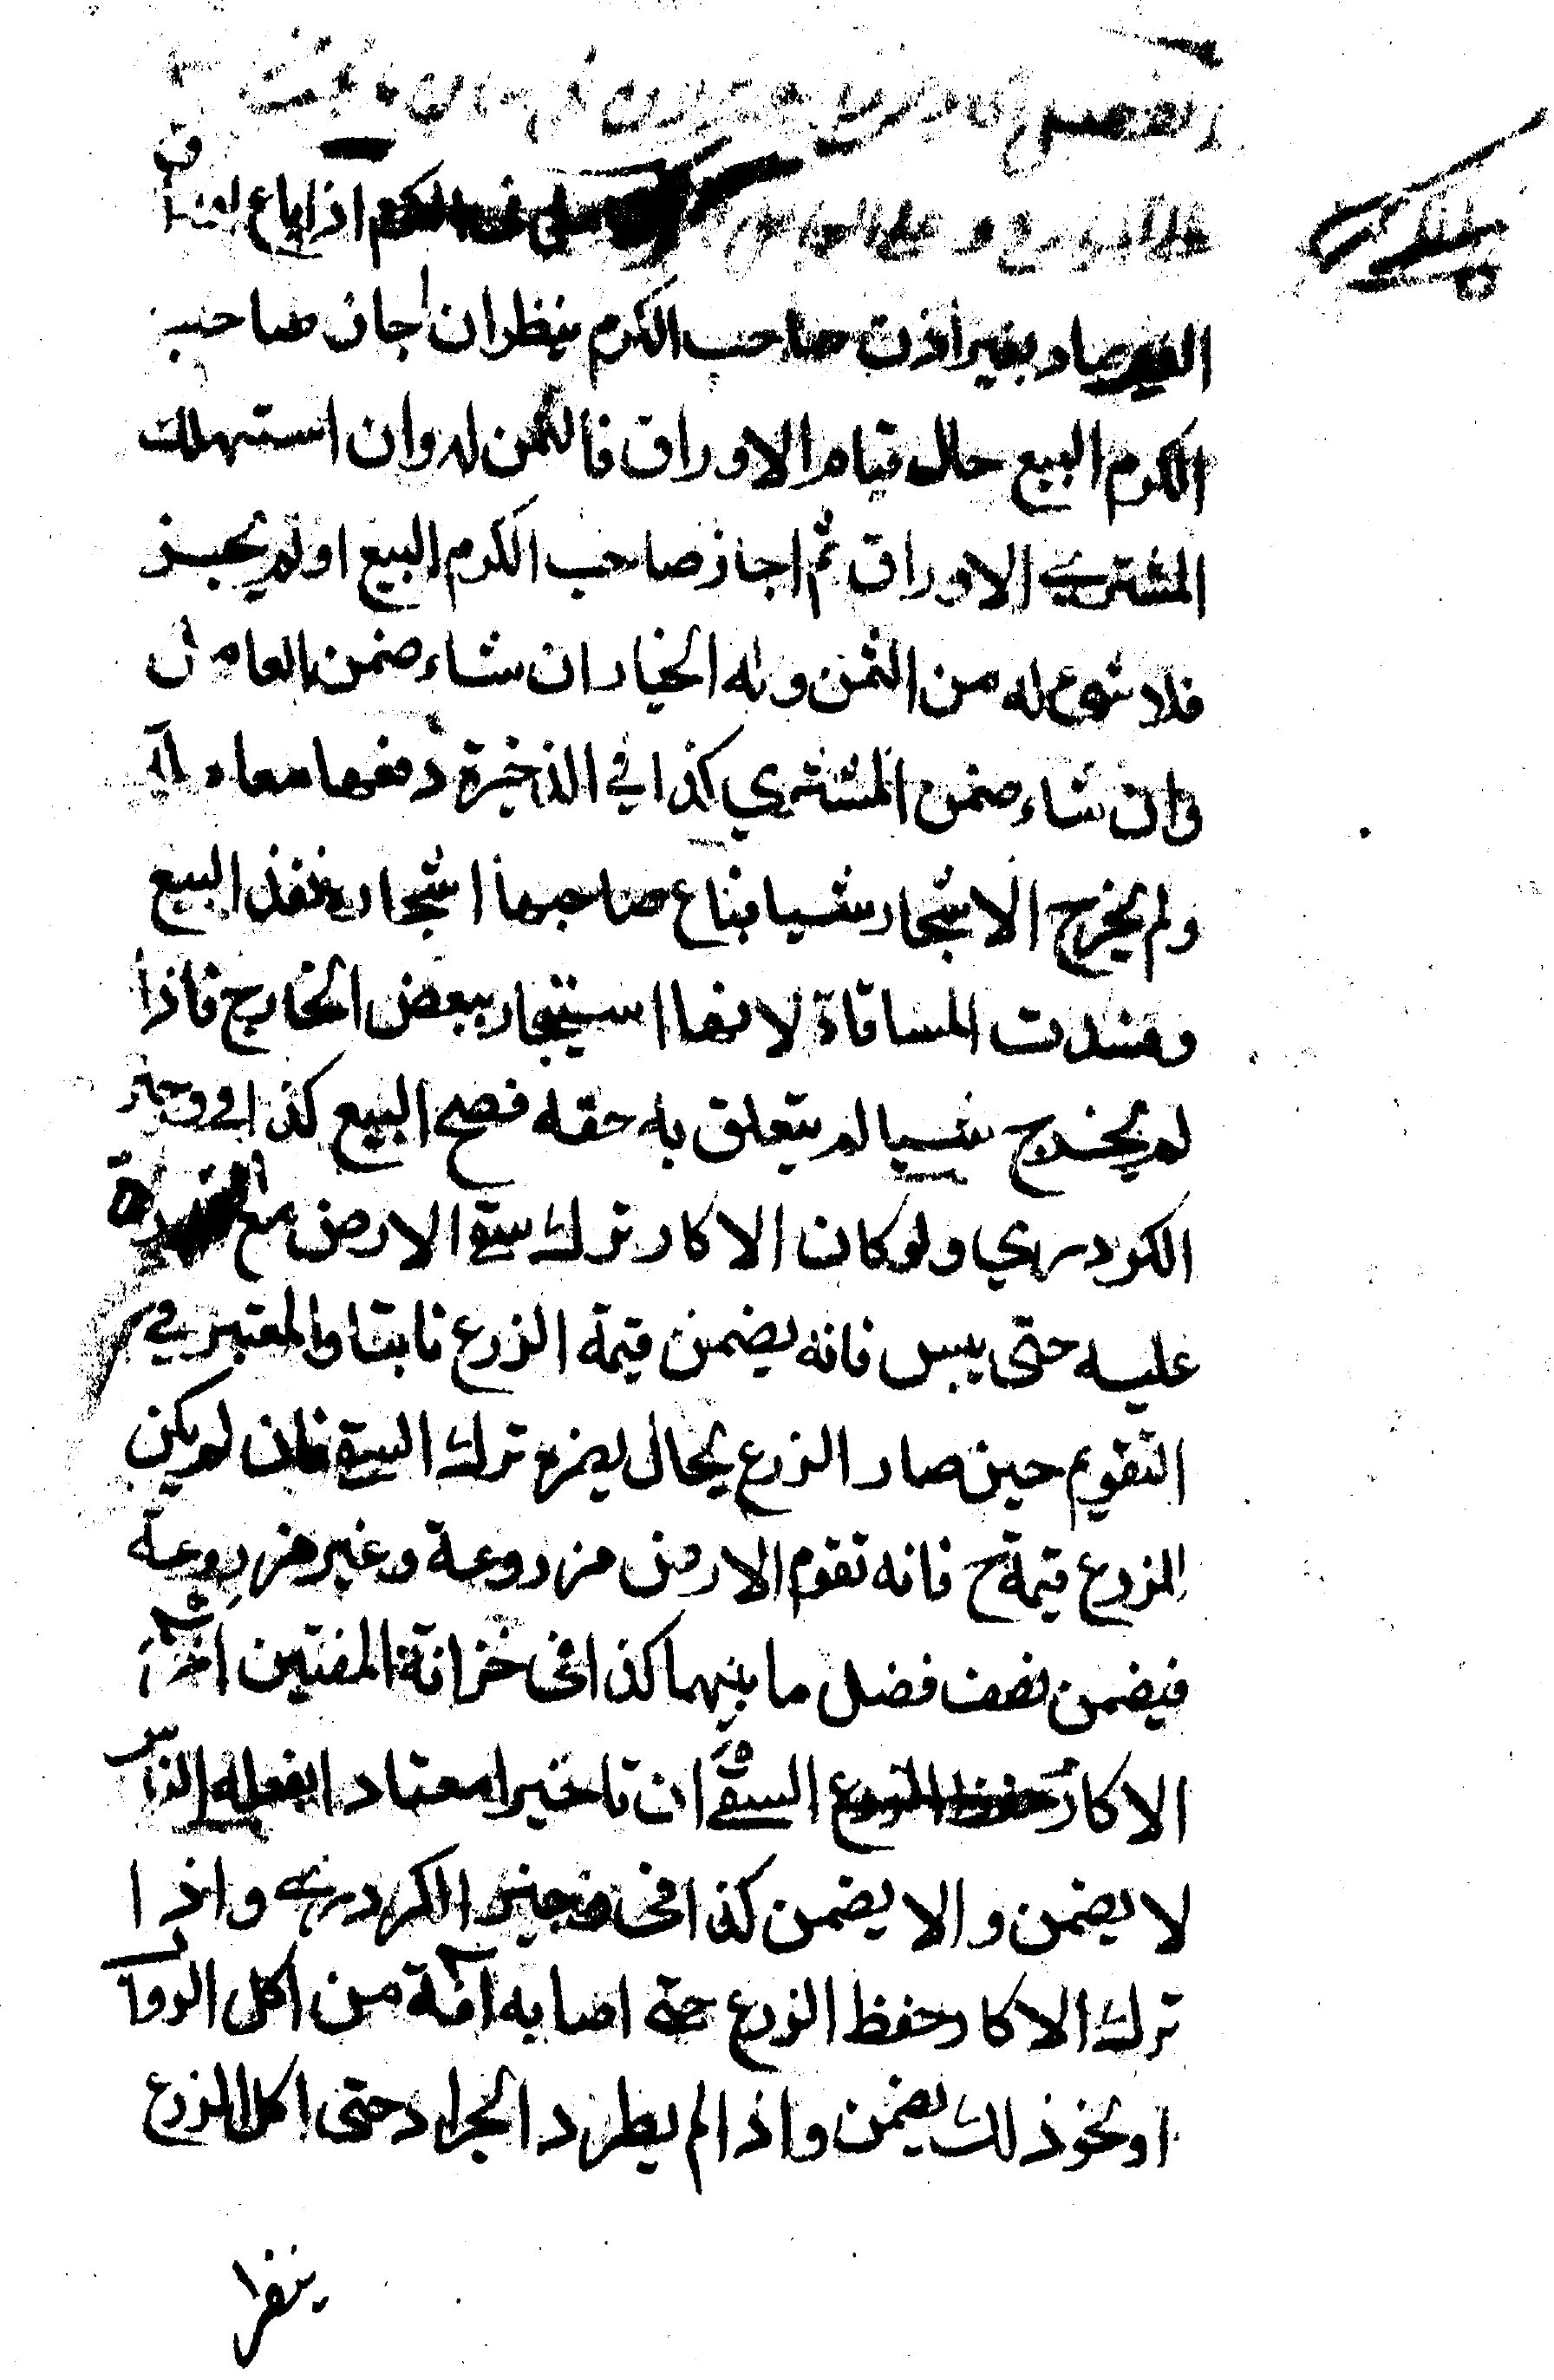 الفصل
على المزارع و على العامل في الكرم اذا باع اغصان
الفرصاد بغير اذن صاحب الكرم ينظر ان اجاز صاحب
الكرم البيع حال قيام الاوراق فالثمن له وان استهلك
المشترى الاوراق ثم اجاز صاحب الكرم البيع او لم يجز
فلا شئ له من الثمن وله الخيار ان شاء ضمن العامل
وان شاء ضمن المشتري كذا في الذخيرة دفعها معاملة
ولم يخرج الاشجار شيا فباع صاحبها اشجاره نفذ البيع
وفسدت المساقاة لانها استيجار ببعض الخارج فاذا
لم يخرج شيا لم يتعلق به حقه فصح البيع كذا في وجيز
الكودري ولو كان الاكار ترك سقي الارض مع القدرة
عليه حتى يبس فانه يضمن قيمة الزرع نابتا والمعتبر في
التقويم حين صار الزرع بحال يضره ترك السقي فان لم يكن
للزرع قيمة ح فانه تقوم الارض مزروعة وغير مزروعة
فيضمن نصف فضل ما بينهما كذا فى خزانة المفتين اخر
الاكار السقي ان تاخيرا معتادا يفعله الناس
لا يضمن والا يضمن كذا فى وجيز الكردرى واذا
ترك الاكار حفظ الزرع حتى اصابه آفة من اكل الدواب
او نحو ذلك يضمن واذا لم يطرد الجراد حتى اكل الزرع
ينظر